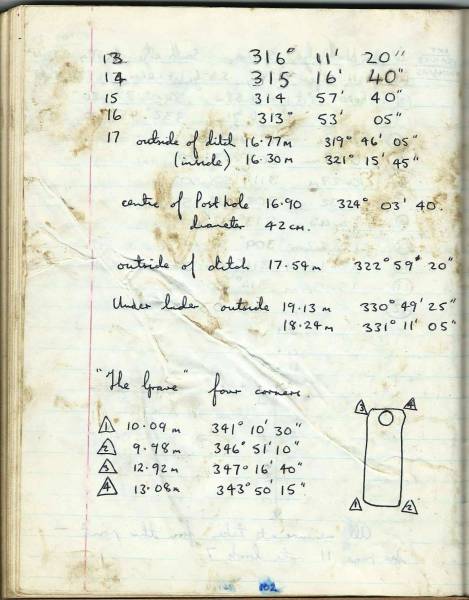 13 316° 11' 20"
14 315 16' 40"
15 314 57' 40"
16 313° 53' 05"
17 outside of ditch 16.77m 319° 46' 05"
(inside) 16.30m 321° 15' 45"
centre of Post hole 16.90 324° 03' 40.
diameter 42cm.
outside of ditch 17.54m 322° 59" 20"
Under outside 19.13m 330° 49' 25"
18.24m 331° 11' 05"
"The Grave" four corners.
1 10.09m 341° 10' 30"
2 9.98m 346° 51' 10"
3 12.92m 347° 16' 40"
4 13.08m 343° 50' 15"
3 4
1 2
102